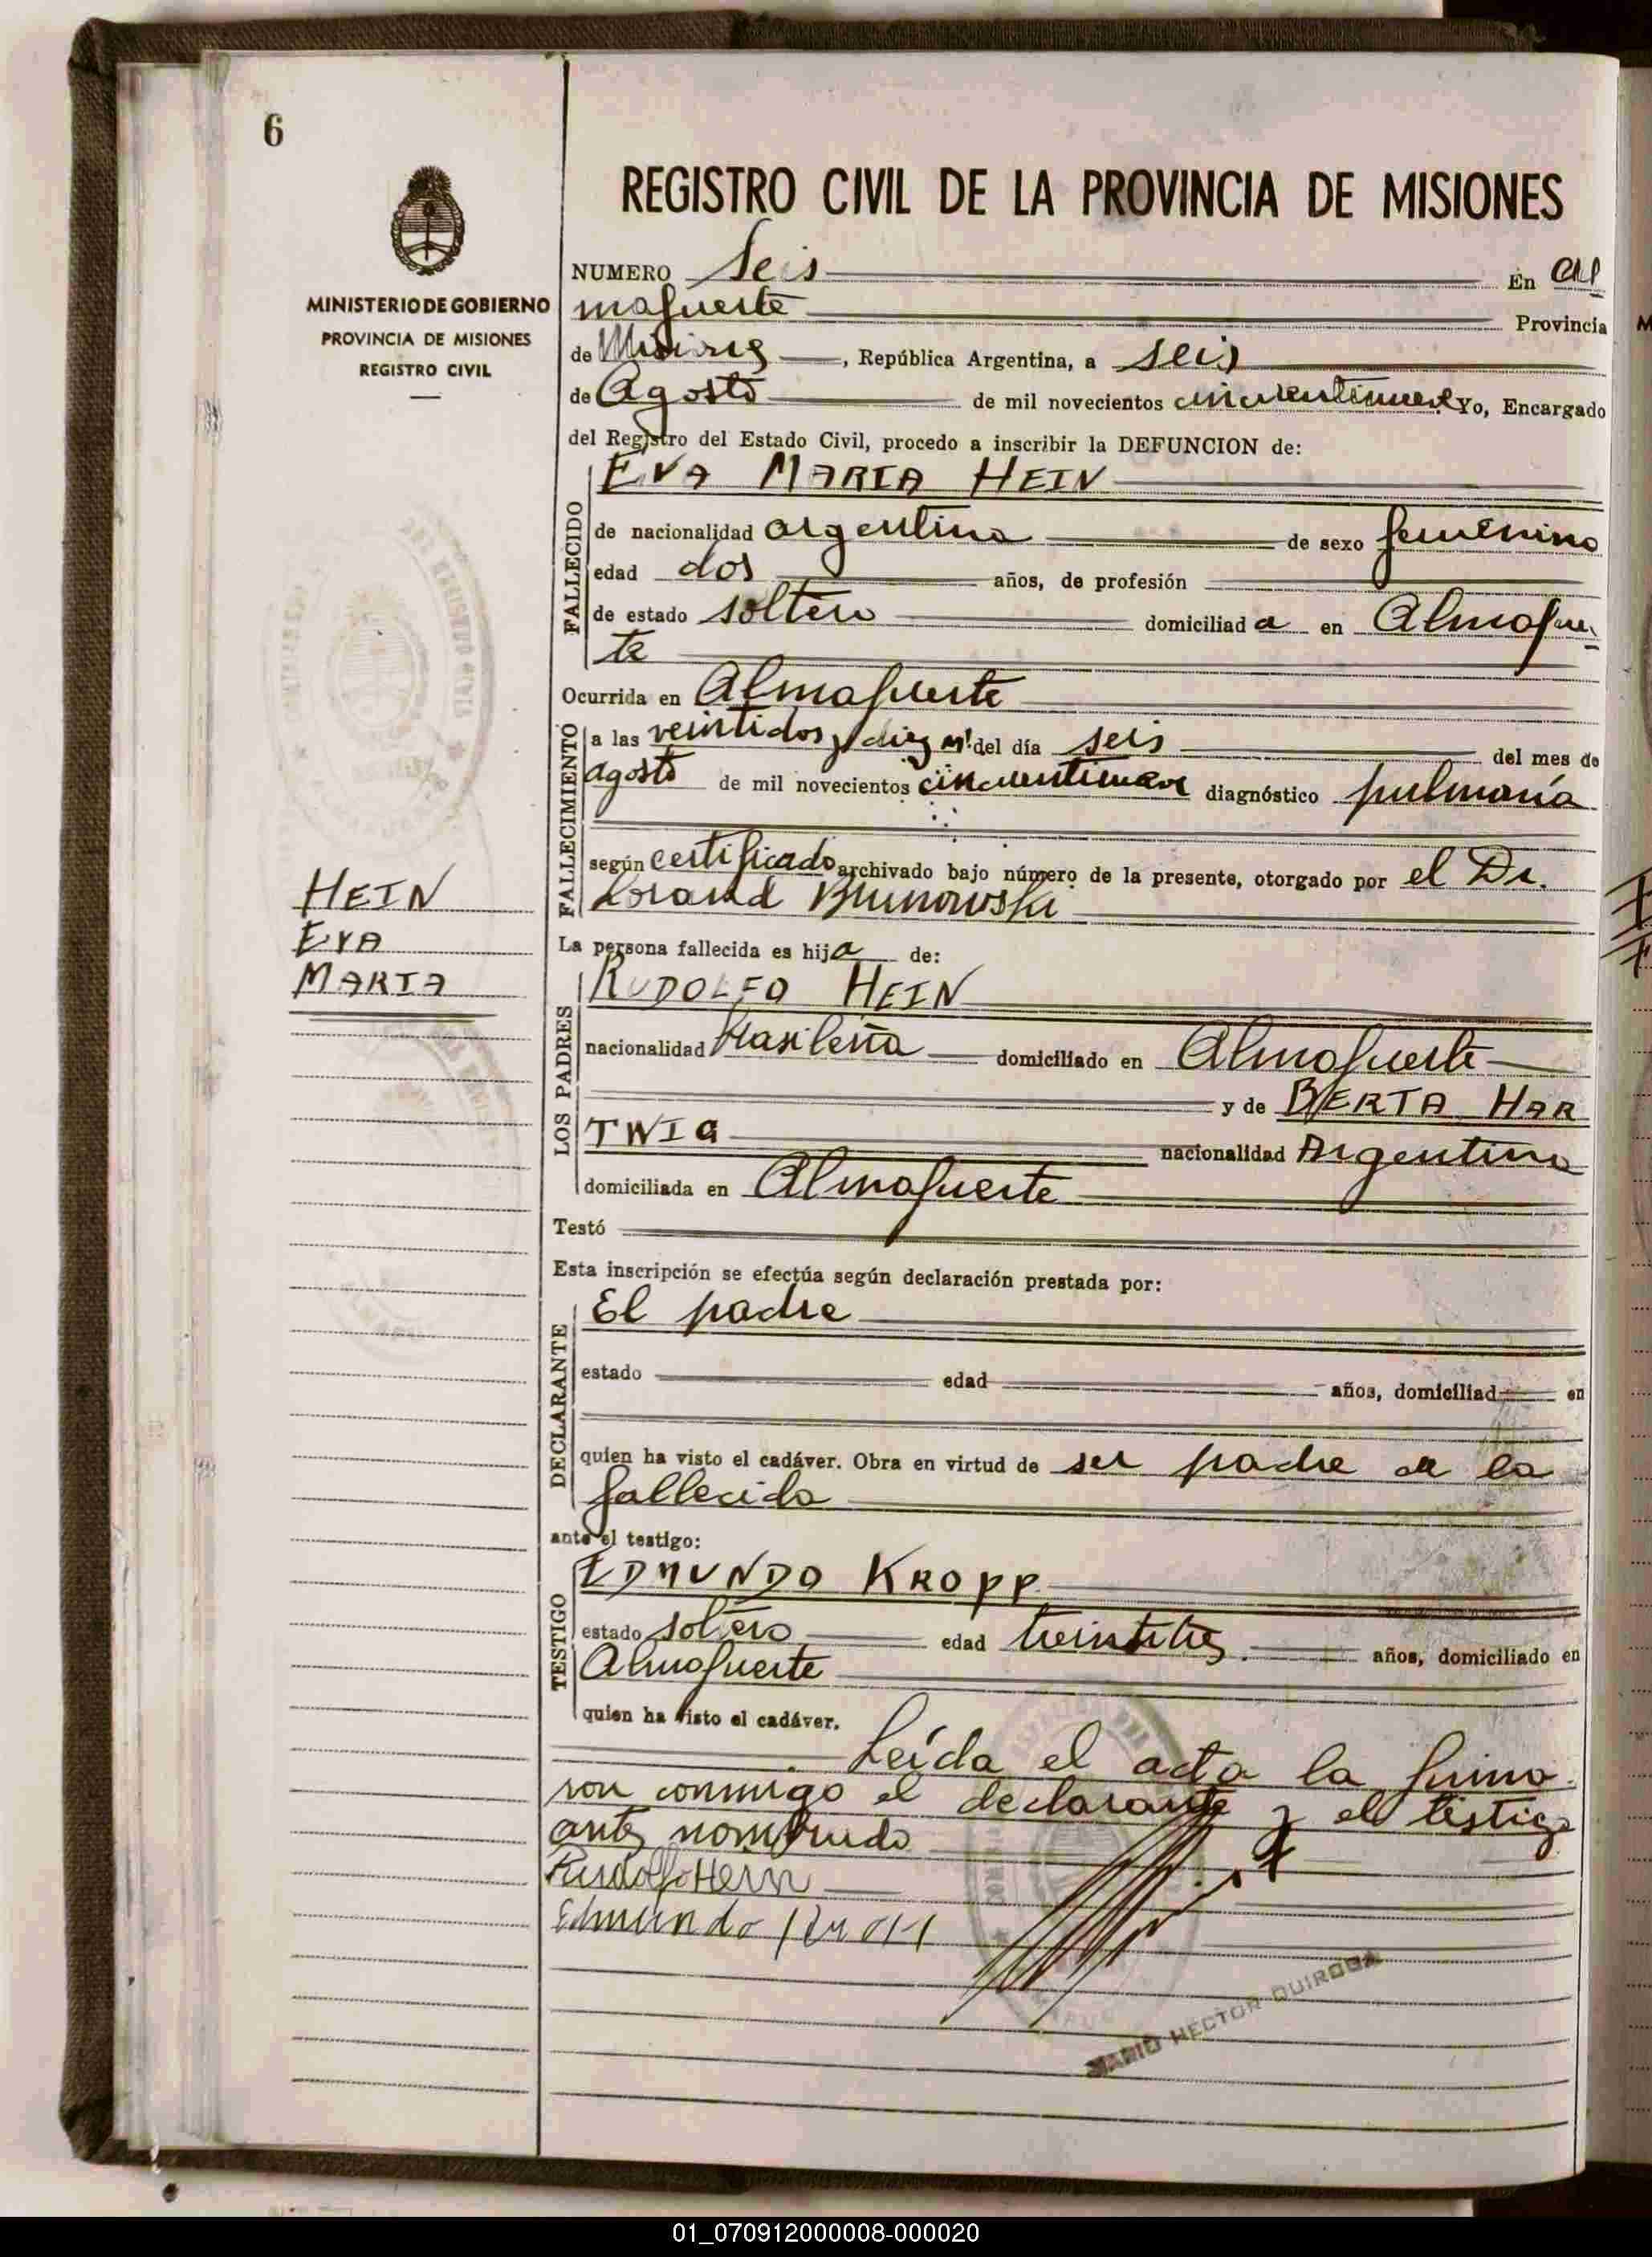 6
REGISTRO CIVIL DE LA PROVINCIA DE MISIONES
MINISTERIO DE GOBIERNO
PROVINCIA DE MISIONES
REGISTRO CIVIL
NUMERO Seis En Al
mafuerte Provincia
de Misiones, República Argentina, a seis
de Agosto de mil novecientos cincuentinueve Yo, Encargado
del Registro del Estado Civil, procedo a inscribir la DEFUNCION de:
EVA MARIA HEIN
FALLECIDO
de nacionalidad argentina de sexo femenino
edad dos años, de profesión
de estado soltera domiciliada en Almafuer
te
Ocurrida en Almafuerte
FALLECIMIENTO
a las veintidos y diez m. del día seis del mes de
agosto de mil novecientos cincuentinueve diagnóstico pulmonía
según certificado archivado bajo número de la presente, otorgado por el Dr.
Lorand Brunowski
HEIN
EVA
MARIA
La persona fallecida es hija de:
LOS PADRES
RUDOLFO HEIN
nacionalidad brasileña domiciliado en Almafuerte
y de BERTA HAR
TWIG nacionalidad Argentina
domiciliada en Almafuerte
Testó
Esta inscripción se efectúa según declaración prestada por:
DECLARANTE
El padre
estado edad años, domiciliad en
quien ha visto el cadáver. Obra en virtud de ser padre de la
fallecida
ante el testigo:
TESTIGO
EDMUNDO KROPP
estado soltero edad treintitres años, domiciliado en
Almafuerte
quien ha visto el cadáver.
Leída el acta la firma
ron conmigo el declarante y el testigo
antes nombrado
Rudolfo Hein
Edmundo Kropp
MARIO HECTOR QUIROGA
01_070912000008-000020